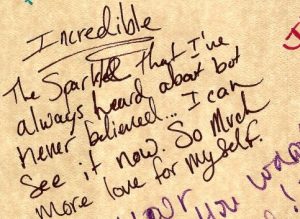 Incredible
The Sparkle that I've
always heard about but
never believed... I can
see it now. So Much
more love for myself.
your
you